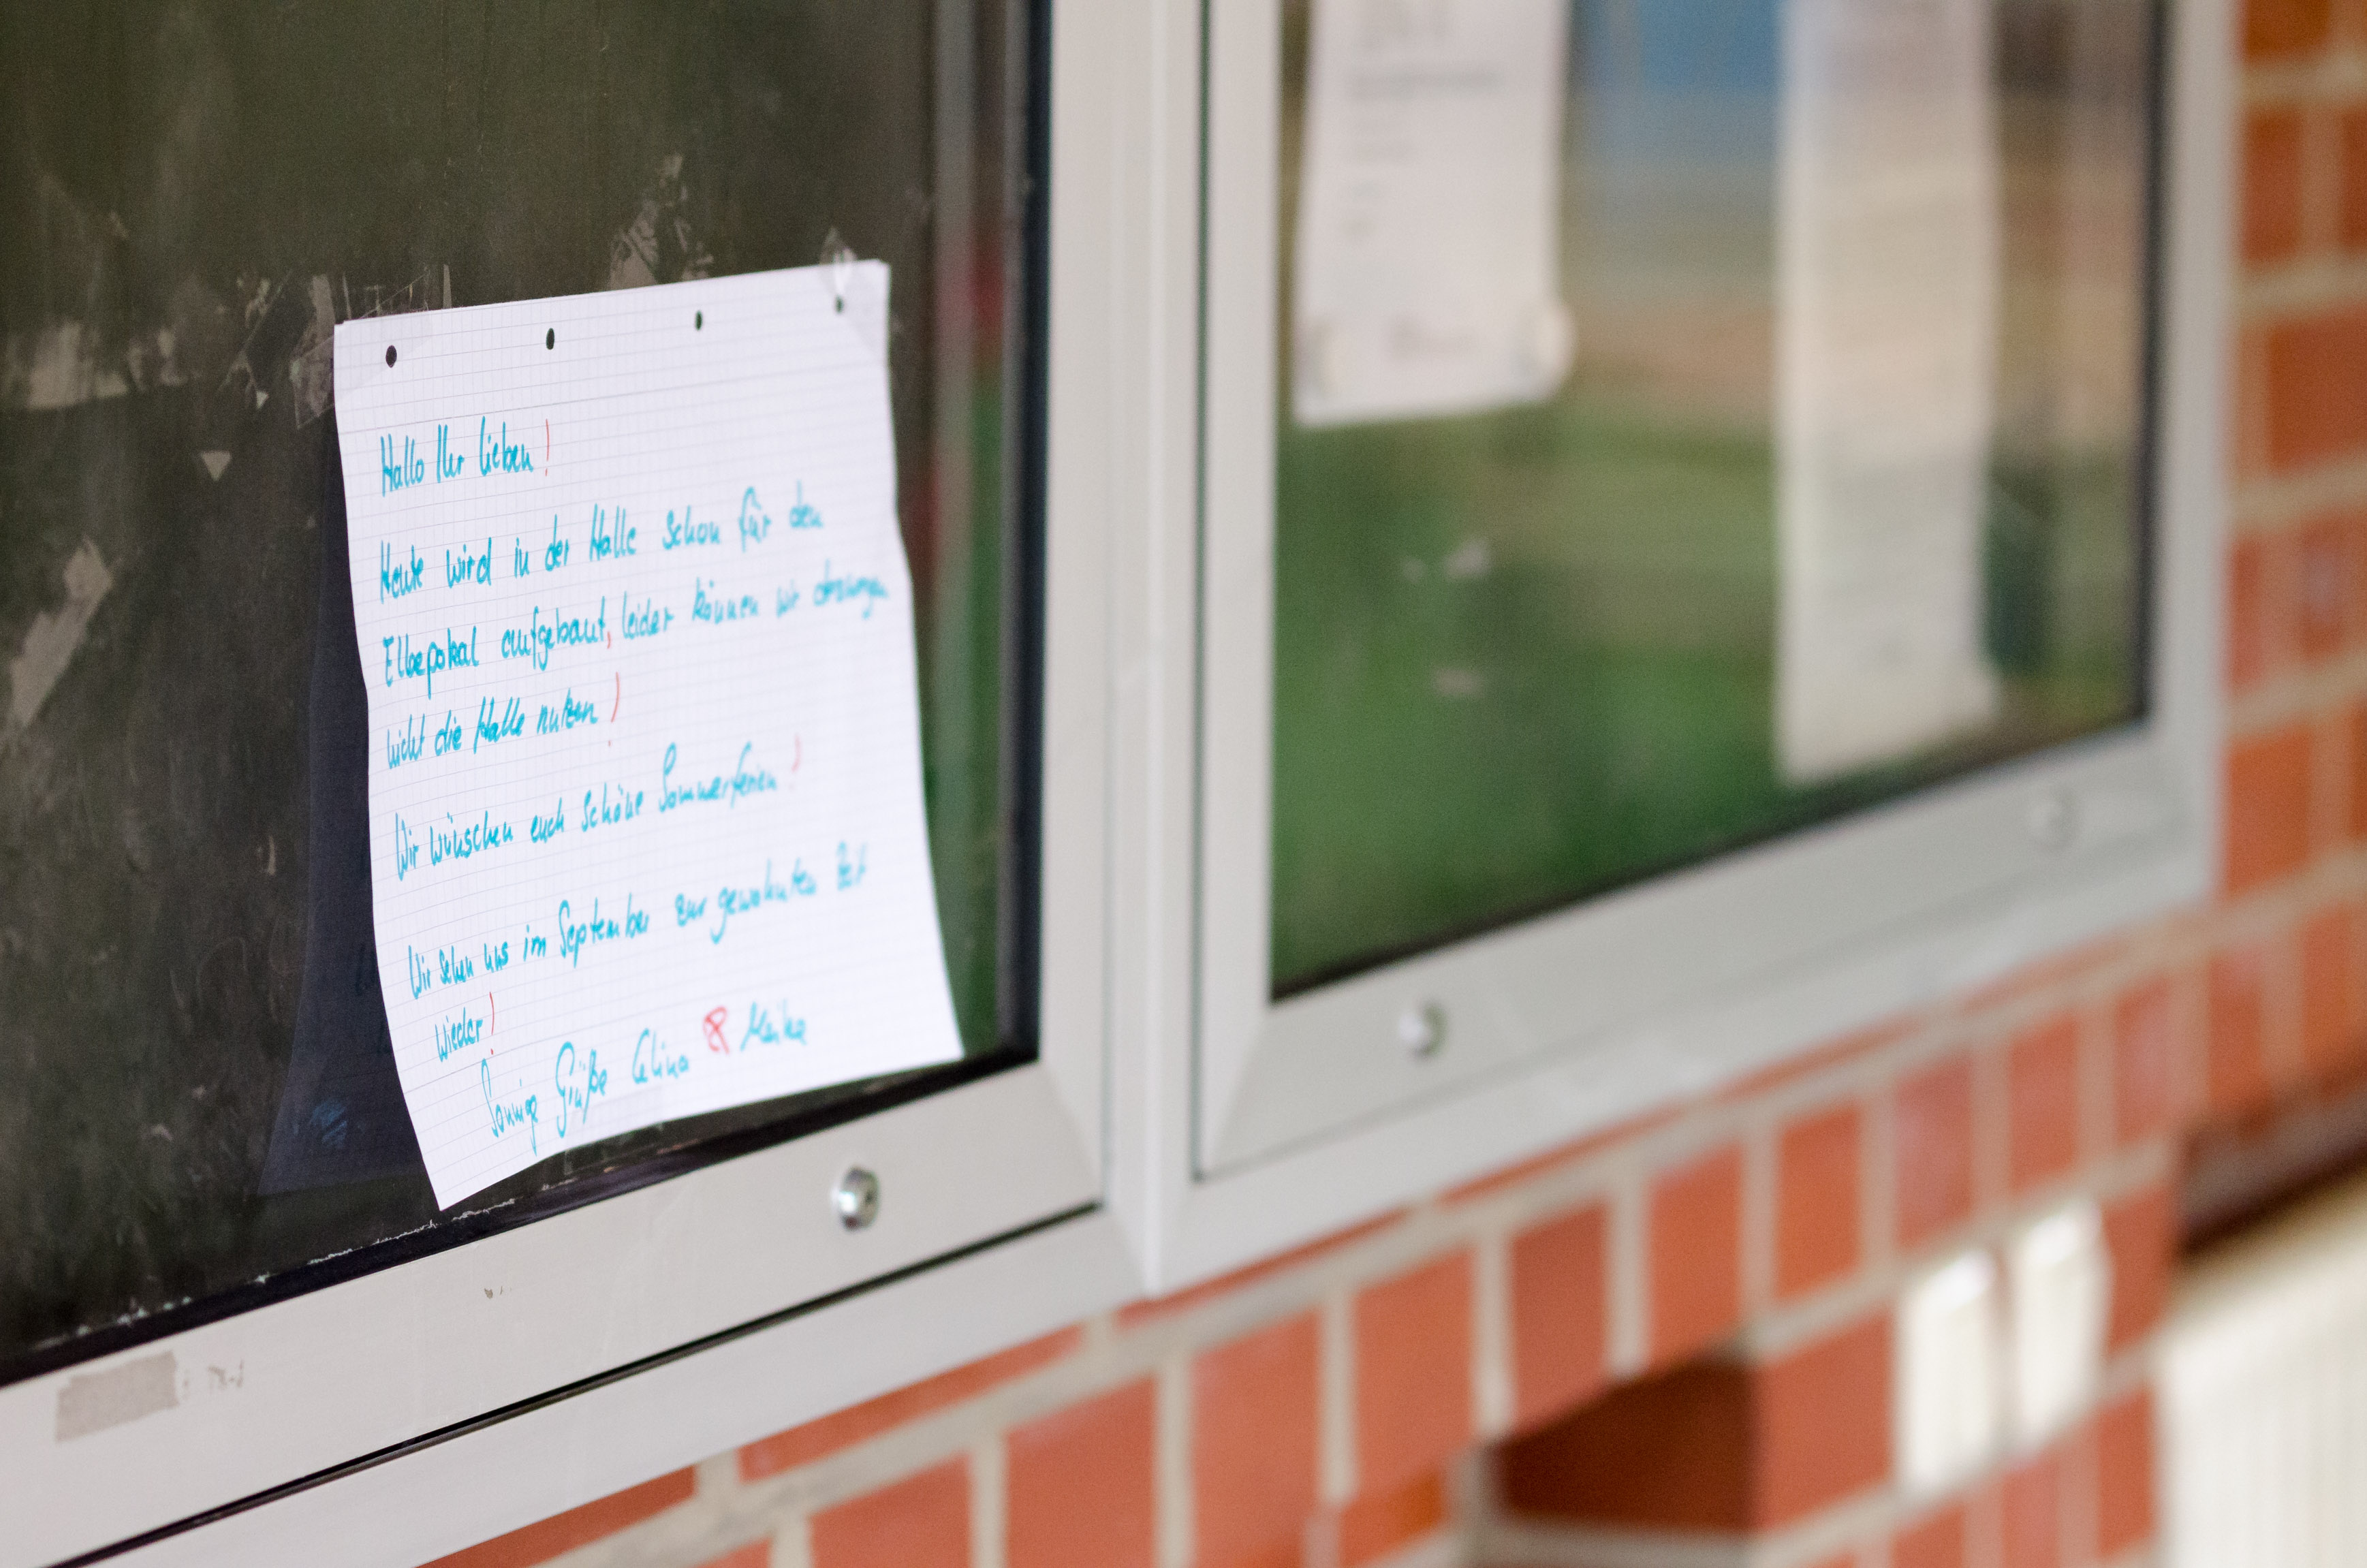 Hallo Ihr lieben!
Heute wird in der Halle schon für den
Elbepokal aufgebaut, leider können wir deswegen
nicht die Halle nutzen!
Wir wünschen euch schöne Sommerferien!
Wir sehen uns im September zur gewohnten Zeit
wieder!
Sonnige Grüße Celina & Meike